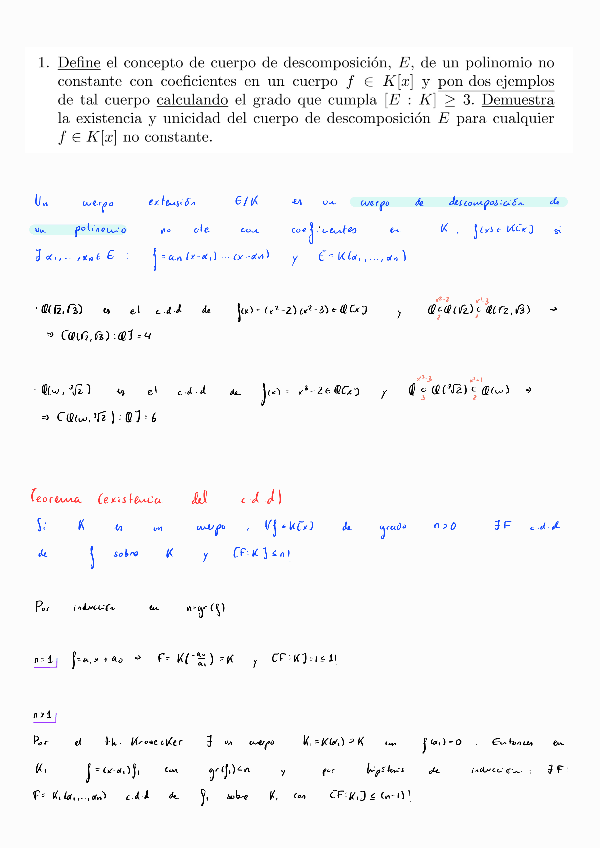 1. Define el concepto de cuerpo de descomposición, E, de un polinomio no
constante con coeficientes en un cuerpo f ∈ K[x] y pon dos ejemplos
de tal cuerpo calculando el grado que cumpla [E : K] ≥ 3. Demuestra
la existencia y unicidad del cuerpo de descomposición E para cualquier
f ∈ K[x] no constante.
Un cuerpo extensión E/K es un cuerpo de descomposición de
un polinomio no cte con coeficientes en K, f(x) ∈ K[x] si
∃ α₁,...,αn ∈ E : f = an(x-α₁)...(x-αn) y E = K(α₁,...,αn)
x²-2 x²-3
· Q(√2,√3) es el c.d.d de f(x) = (x²-2)(x²-3) ∈ Q[x] y Q ⊂ Q(√2) ⊂ Q(√2,√3) ⇒
2 2
⇒ [Q(√2,√3) : Q] = 4
· Q(w, ³√2) es el c.d.d de f(x) = x³-2 ∈ Q[x] y Q ⊂ Q(³√2) ⊂ Q(w) ⇒
3 2
⇒ [Q(w, ³√2) : Q] = 6
Teorema (existencia del c d d)
Si K es un cuerpo, ∀f ∈ K[x] de grado n>0 ∃F c.d.d
de f sobre K y [F:K] ≤ n!
Por inducción en n=gr(f)
n=1 f = a₁x + a₀ ⇒ F = K(-a₀/a₁) = K y [F:K] = 1 ≤ 1!
n>1
Por el th. Kronecker ∃ un cuerpo K₁ = K(α₁) ⊃ K con f(α₁) = 0. Entonces en
K₁ f = (x-α₁)f₁ con gr(f₁)<n y por hipótesis de inducción: ∃F
F = K₁(α₂,...,αn) c.d.d de f₁ sobre K₁ con [F:K₁] ≤ (n-1)!